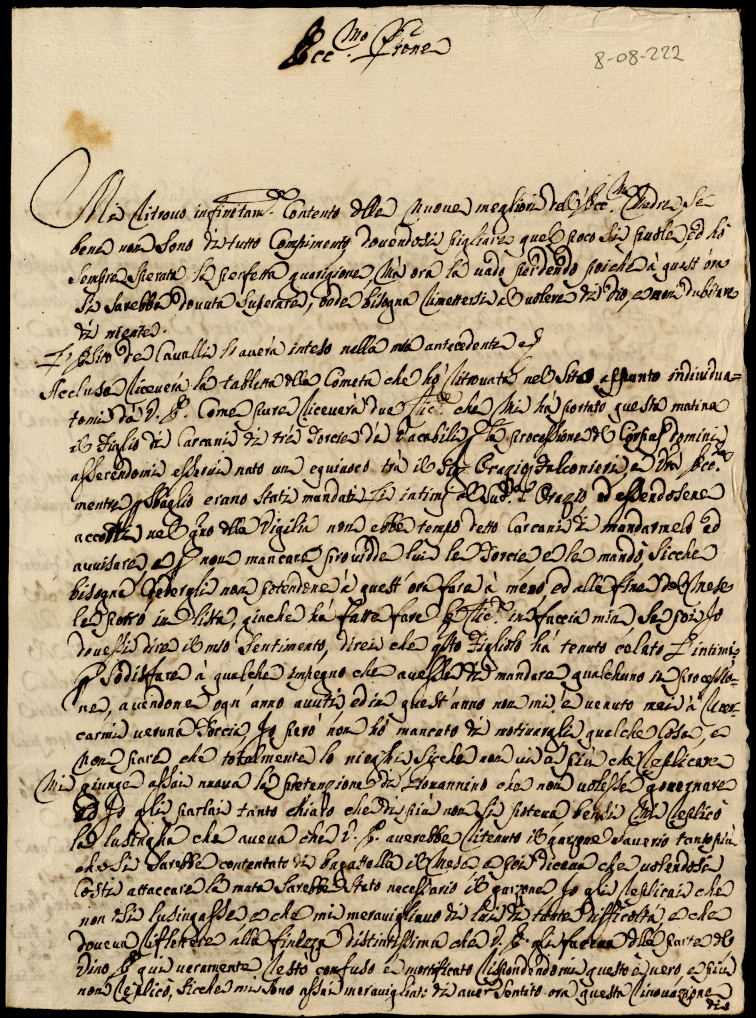 Ecc.mo Prone
8-08-222
Mi ritrovo infinitam.te Contento delle Nuove megliori dell'Ecc.ma Madre, se
bene non sono di tutto Compimento, dovendosi pigliare quel poco si puole, ed hò
sempre sperata la perfetta guarigione, Mà ora la vado perdendo poiche à quest'ora
si sarebbe dovuta superare, onde bisogna rimettersi al volere di Dio, e non dubitare
di niente.
L'Esito de Cavalli l'averà inteso nella mia antecedente e
Acclusa riceverà la tabella della Cometa che hò ritrovata nel Sito appunto individua=
tomi dà V. E. Come pure riceverà due che Mi hà portato questa matina
il Figlio di Carcani di trè Torcie dà p la processione del Corpus domini
asserendomi esservi nato un equivoco trà il Sig. Orazio Falconieri, e Vra Ecc.za
mentre p sbaglio erano stati mandati l'intimi al Sud.o D. Orazio ed essendosene
accorti nel gno della Vigilia non ebbe tempo detto Carcani di mandarmelo ad
avvisare, e p non mancare providde lui le Torcie, e le mandò, Sicche
bisogna non potendone à quest'ora fare à meno, ed alla fine del Mese
le porrò in lista, giache hà fatte fare in faccia mia, Se poi Io
dovessi dire il mio Sentimento, direi che qsto Figliolo hà tenuto celato l'intimi
p sodisfare à qualche impegno che avesse di mandare qualchuno in processio=
ne, avendone ogn'anno avuti, ed in quest'anno non mi è venuto mai à ricer=
carmi veruna Torcia, Io però non hò mancato di motivargli qualche Cosa, e
Non pare che totalmente lo nieghi, Sicche non vi è più che replicare
Mi giunge assai nuova la pretenzione di Giovannino che non volesse governare
ed Io gli parlai tanto chiaro che di più non si poteva bensì Mi replicò
la lusingha che aveva che V. E. averebbe ritenuto il garzone Saverio tanto più
che si sarebbe contentato di bagattella il Mese, e poi diceva che volendosi
Costì attaccare la muta sarebbe stato necessario il garzone, Io gli replicai che
non si lusingasse, e che mi meravigliavo di lui di tante difficoltà, e che
doveva riflettere alla finezza distintissima che V. E. gli faceva della parte del
Vino, E qui veramente restò confuso e mortificato rispondendomi questo è vero, e più
non replicò, Sicche mi sono assai meravigliato di aver sentito ora questa rinovazione
di